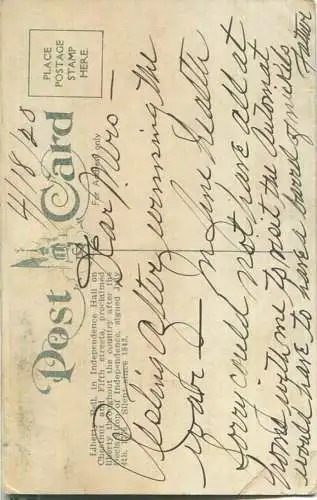 Post Card
PLACE
POSTAGE
STAMP
HERE.
For Address only
Liberty Bell, in Independence Hall on
Chestnut and Fifth streets, proclaimed
liberty throughout the country after the
Declaration of Independence, signed July
4th, 1776. Silent since 1843.
4/18/28
Dear Mero —
Feeling better, winning the
in fine health
Sorry could not have all at
home with us to visit the Automat
would have to have a barrel of nickels
Father